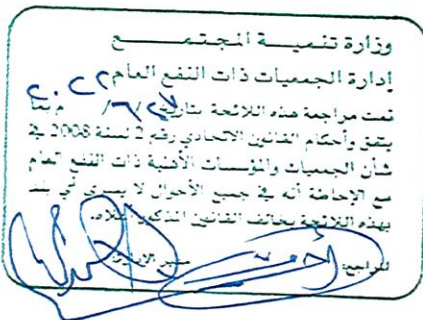 وزارة تنمية المجتمع
إدارة الجمعيات ذات النفع العام
تمت مراجعة هذه اللائحة بتاريخ ٢٧/٦/٢٠٢٢ م بما
يتفق وأحكام القانون الاتحادي رقم 2 لسنة 2008 في
شأن الجمعيات والمؤسسات الأهلية ذات النفع العام
مع الإحاطة أنه في جميع الأحوال لا يسري أي بند
بهذه اللائحة يخالف القانون المذكور أعلاه.
المراجع: مدير الإدارة: